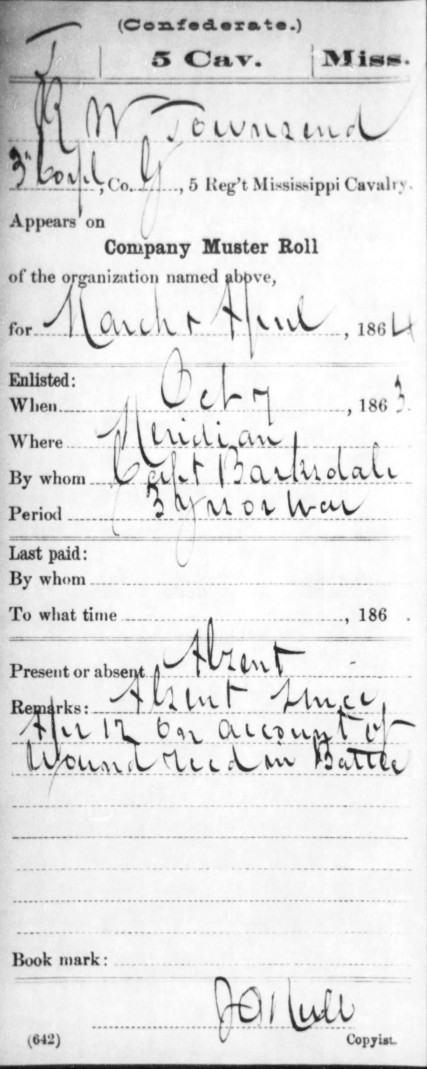 (Confederate.)
T | 5 Cav. | Miss.
R W Townsend
3" Corpl, Co. G, 5 Reg't Mississippi Cavalry.
Appears on
Company Muster Roll
of the organization named above,
for March & April, 1864
Enlisted:
When Oct 7, 1863.
Where Meridian
By whom Capt Barksdale
Period 3 yrs or War
Last paid:
By whom
To what time, 186 .
Present or absent Absent
Remarks: Absent since
Apr 12 on account of
Wound recd in Battle
Book mark:
(642) Copyist.